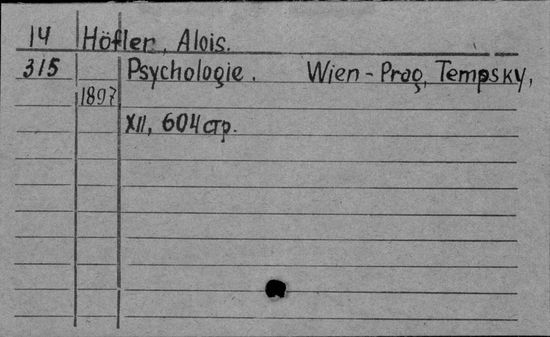 14 Höfler, Alois.
315 Psychologie. Wien-Prag, Tempsky,
1897
XII, 604 стр.